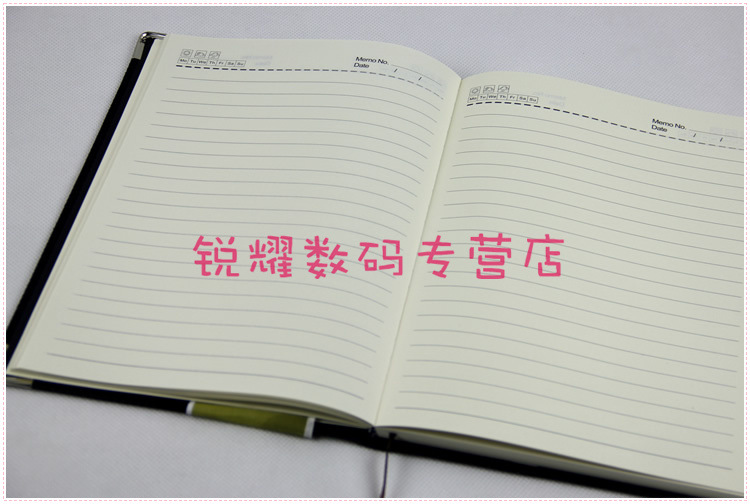 Memo No.
Mo Tu We Th Fr Sa Su
Date / /
Memo No.
Mo Tu We Th Fr Sa Su
Date / /
锐耀数码专营店